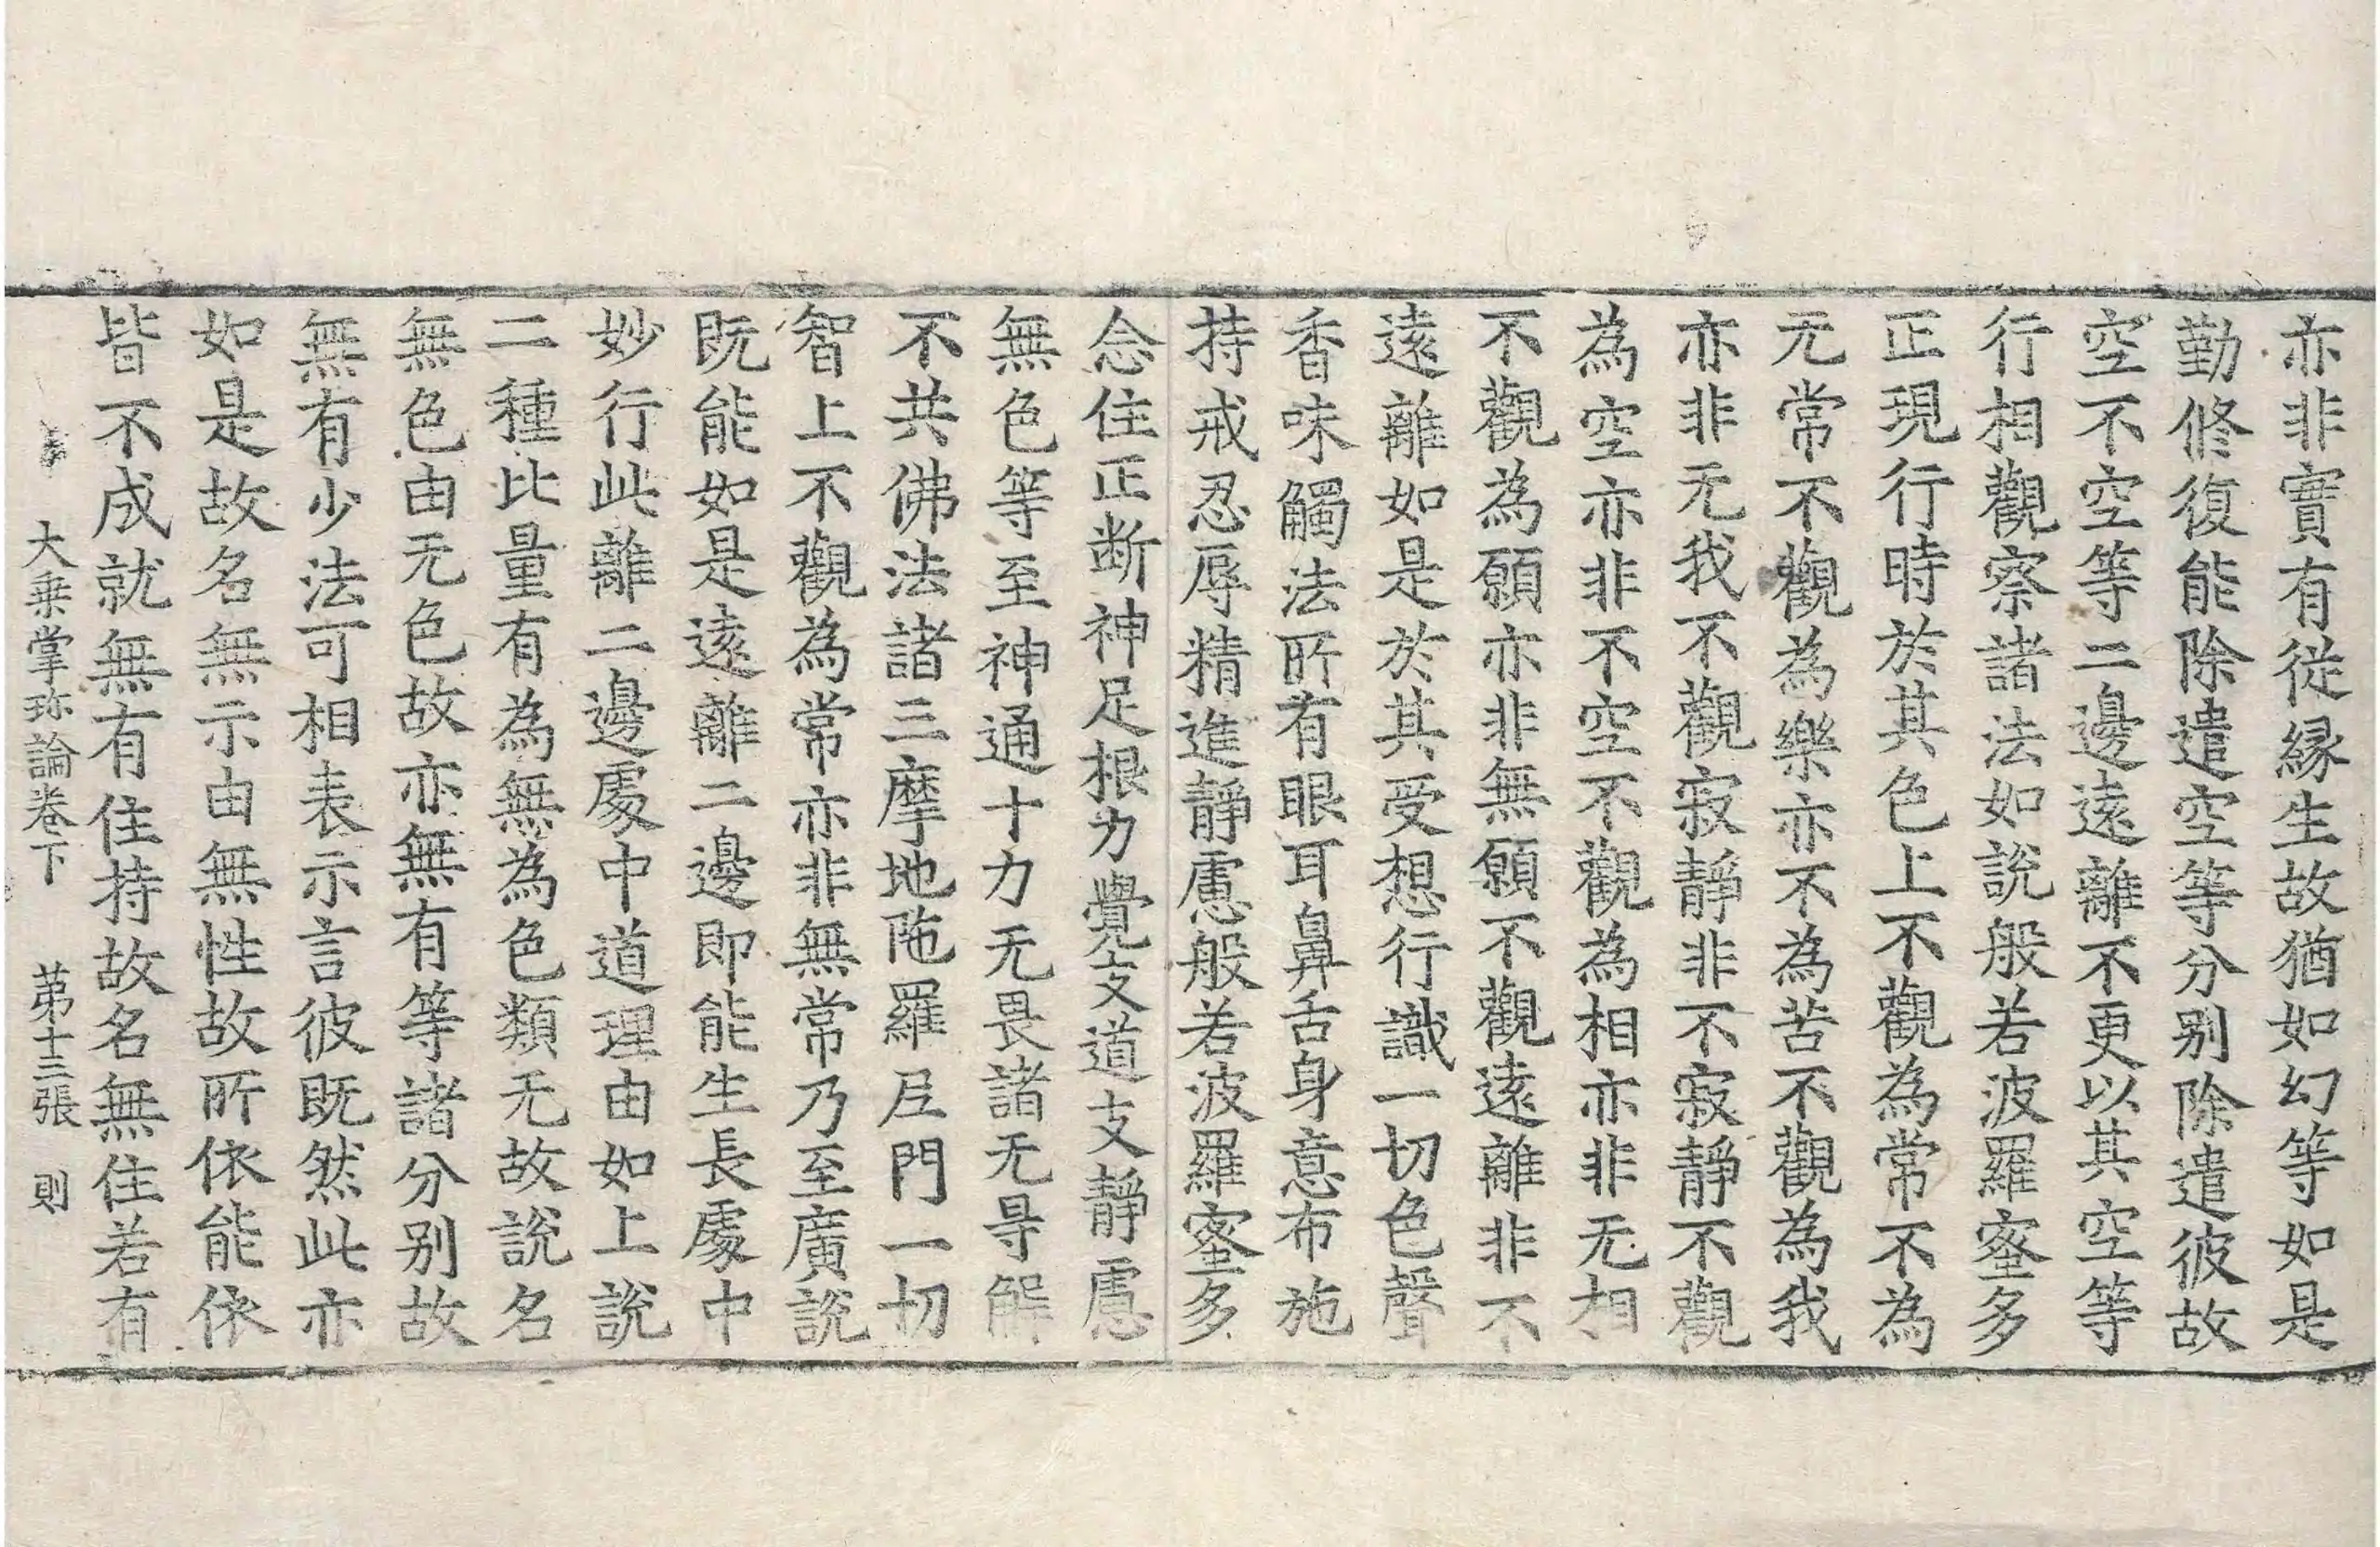 亦非實有從緣生故猶如幻等如是
勤修復能除遣空等分别除遣彼故
空不空等二邊遠離不更以其空等
行相觀察諸法如說般若波羅蜜多
正現行時於其色上不觀為常不為
无常不觀為樂亦不為苦不觀為我
亦非无我不觀寂靜非不寂靜不觀
為空亦非不空不觀為相亦非无相
不觀為願亦非無願不觀遠離非不
遠離如是於其受想行識一切色聲
香味觸法所有眼耳鼻舌身意布施
持戒忍辱精進靜慮般若波羅蜜多
念住正断神足根力覺支道支靜慮
無色等至神通十力无畏諸无㝵解
不共佛法諸三摩地陁羅尼門一切
智上不觀為常亦非無常乃至廣說
既能如是遠離二邊即能生長處中
妙行此離二邊處中道理由如上說
二種比量有為無為色類无故說名
無色由无色故亦無有等諸分别故
無有少法可相表示言彼既然此亦
如是故名無示由無性故所依能依
皆不成就無有住持故名無住若有
大乗掌珎論卷下 苐十三張 則